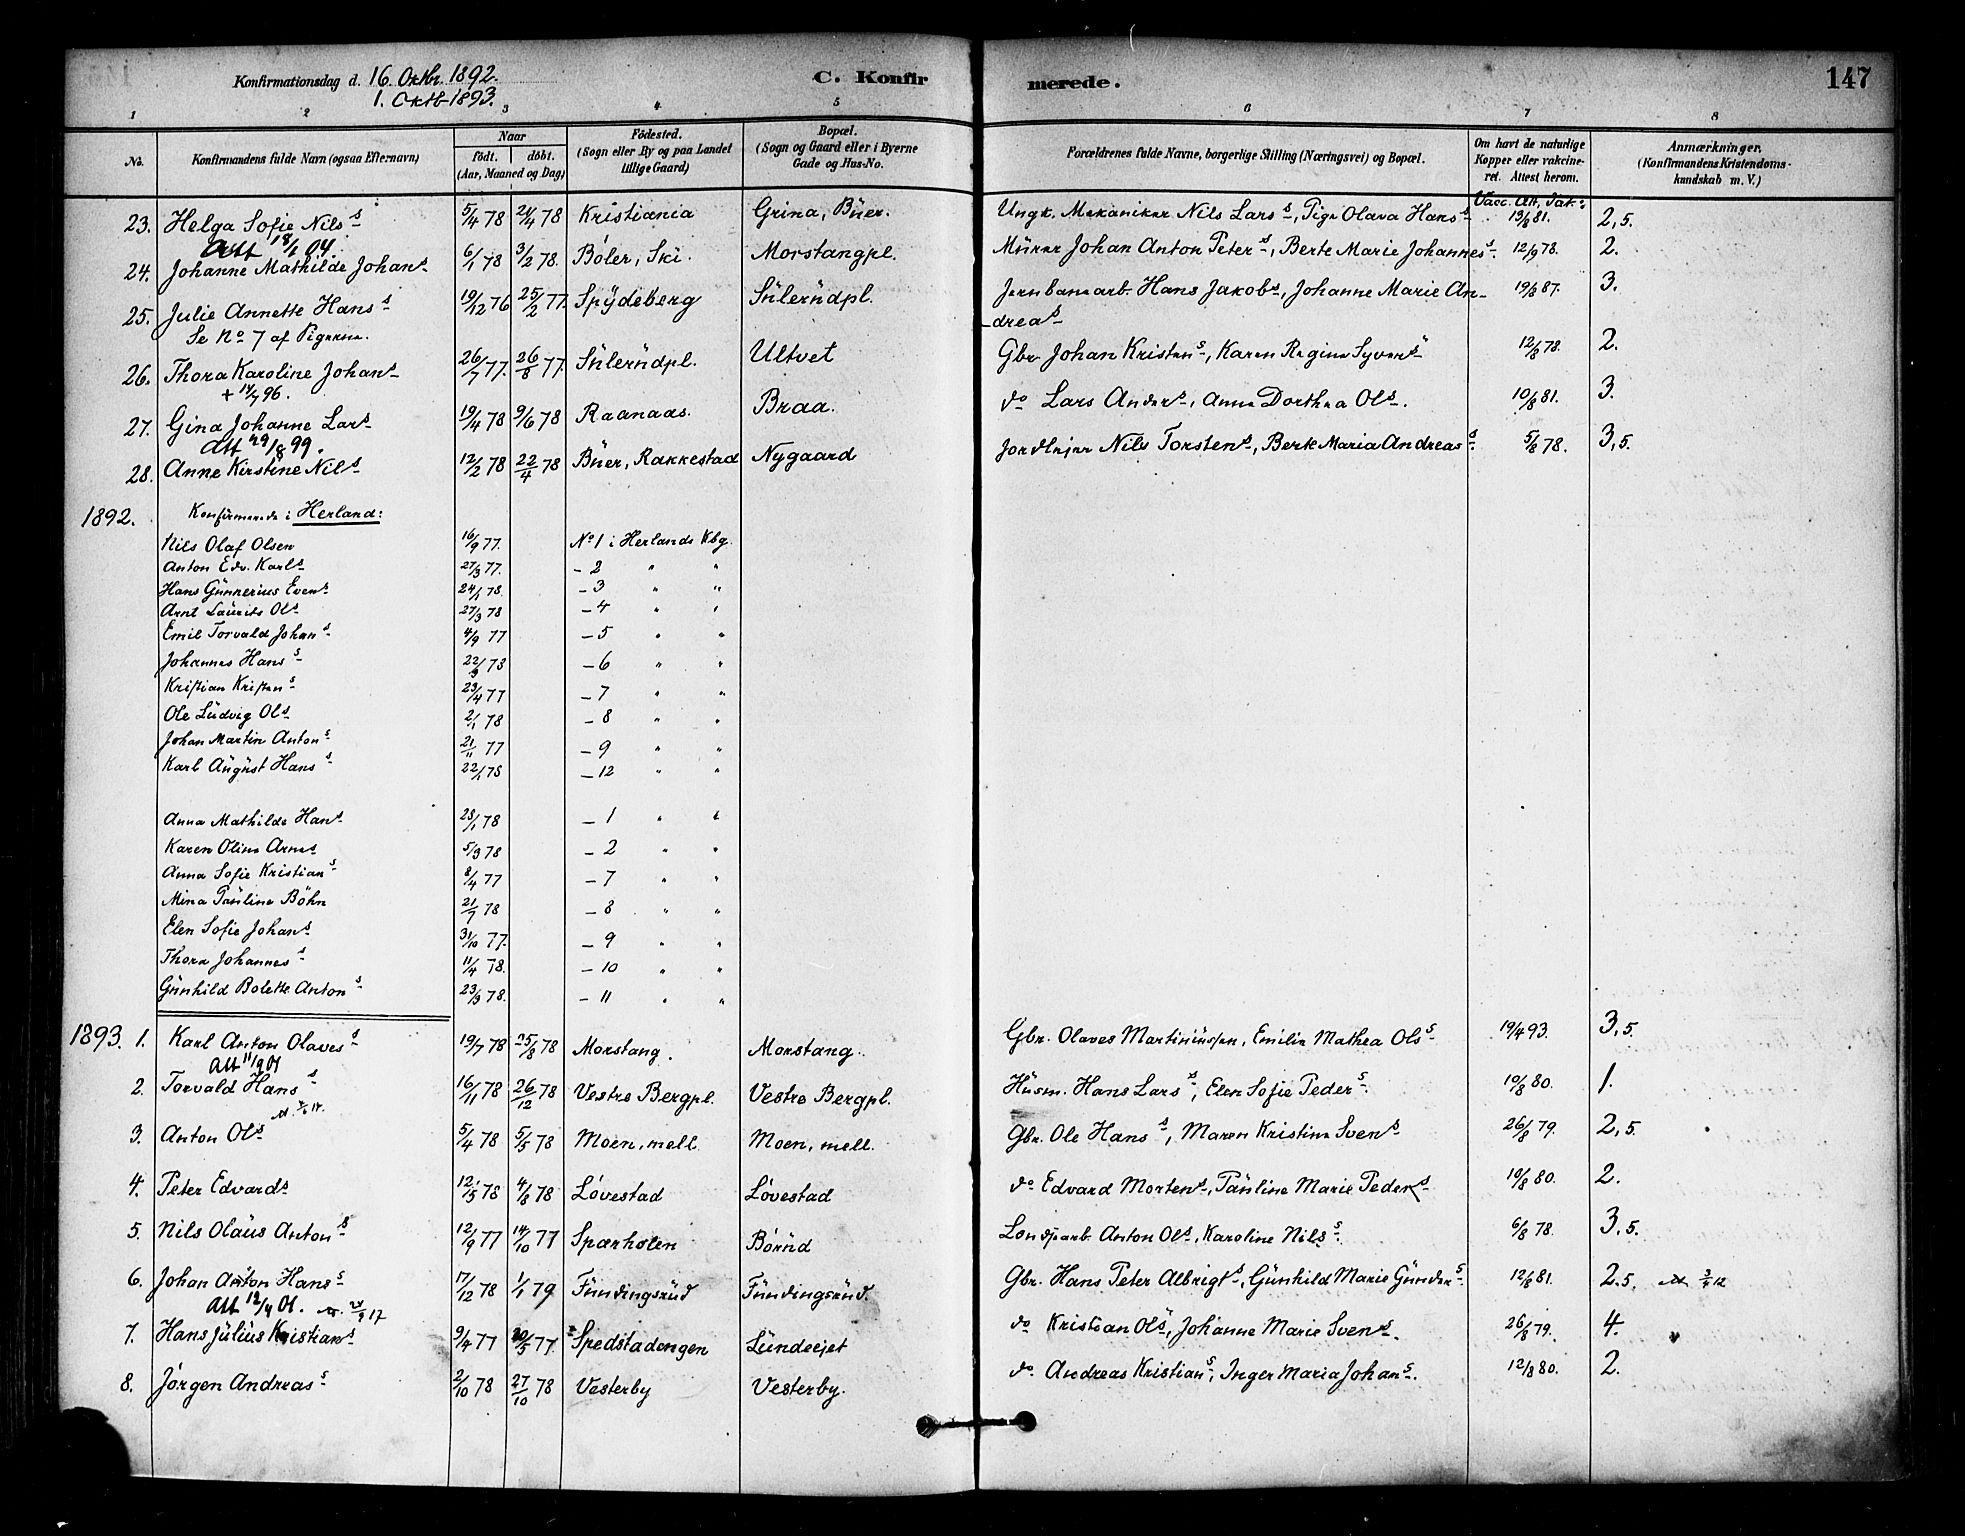 Konfirmationsdag d. 16. Oktbr. 1892.
1. Oktb 1893.
C. Konfirmerede.
147
1 2 3 4 5 6 7 8
No. Konfirmandens fulde Navn (ogsaa Efternavn) Naar födt. döbt. (Aar, Maaned og Dag) Födested. (Sogn eller By og paa Landet tillige Gaard) Bopæl. (Sogn og Gaard eller i Byerne Gade og Hus-No. Forældrenes fulde Navne, borgerlige Stilling (Næringsvei) og Bopæl. Om havt de naturlige Kopper eller vakcineret. Attest herom. Anmærkninger. (Konfirmandens Kristendomskundskab m. V.)
Vacc. Att, Dat.:
23. Helga Sofie Nils s 5/4 78 21/4 78 Kristiania Grina, Büer. Ungk. Mekaniker Nils Lars s, Pige Olava Hans s 13/8 81. 2,5.
Att 18/1 04.
24. Johanne Mathilde Johans 6/1 78 3/2 78. Böler, Ski. Morstangpl. Mürer Johan Anton Peter s, Berte Marie Johannes s. 12/9 78. 2.
25. Julie Annette Hans s 19/12 76 25/2 77. Spydeberg Sülerüdpl. Jernbanearb. Hans Jakobs, Johanne Marie An-
dreas 19/8 87. 3.
Se No 7 af Pigerne.
26. Thora Karoline Johans 26/7 77. 26/8 77. Sülerüdpl. Ultvet Gbr. Johan Kristens, Karen Regine Syvers 12/8 78. 2.
+ 14/7 96.
27. Gina Johanne Lars 19/4 78 9/6 78 Raanaas. Braa. do Lars Anders, Anne Dorthea Ols. 10/8 81. 3.
Att 29/8 99.
28. Anne Kirstine Nils 12/2 78 22/4 78 Büer, Rakkestad Nygaard Jordlejer Nils Torstens, Berte Maria Andreas s. 5/8 78. 3,5.
1892. Konfirmerede i Herland:
Nils Olaf Olsen 16/9 77. No 1 i Herlands Kbg.
Anton Edv. Karls 27/3 77. - 2 " "
Hans Günnerius Evens 24/1 78. - 3 " "
Arnt Laurits Ols 27/3 78 - 4 " "
Emil Torvald Johan s 4/9 77 - 5 " "
Johannes Hans s 22/3 78 - 6 " "
Kristian Kristen s 23/4 77 - 7 " "
Ole Lüdvig Ols 2/1 78 - 8 " "
Johan Martin Anton s 21/11 77 - 9 " "
Karl Aügüst Hans s 22/1 78 - 12 " "
Anna Mathilde Hans 28/1 78 - 1 " "
Karen Oline Arnes 5/3 78 - 2 " "
Anna Sofie Kristian s 8/4 77 - 7 " "
Mina Paüline Böhn 21/7 78 - 8 " "
Elen Sofie Johans 31/10 77. - 9 " "
Thora Johannes s 11/4 78. - 10 " "
Günhild Bolette Anton s 23/3 78. - 11 " "
1893. 1. Karl Anton Olaves s 19/7 78 25/8 78 Morstang. Morstang. Gbr. Olaves Martiniussen, Emilie Mathea Ols s 19/4 93. 3,5.
Att 11/9 01
2. Torvald Hans s 16/11 78 26/12 78 Vestre Bergpl. Vestre Bergpl. Hüsm. Hans Lars s, Elen Sofie Peder s. 10/8 80. 1.
3. Anton Ols 5/4 78 5/5 78 Moen, mell. Moen, mell. Gbr. Ole Hans s, Maren Kristine Svens 26/8 79. 2,5.
4. Peter Edvards 12/5 78 4/8 78 Lövestad Lövestad do Edvard Mortens, Paüline Marie Peders 10/8 80. 2.
5. Nils Olaüs Anton s 12/9 77 14/10 77 Sparholen Börüd Londsparb. Anton Ols, Karoline Nils s. 6/8 78. 3,5.
6. Johan Anton Hans s 17/12 78 1/1 79 Fündingsrüd Fündingsrüd. Gbr. Hans Peter Albrigts, Günhild Marie Günder s. 12/8 81. 2.5.
Att 12/4 01.
7. Hans Jülius Kristians 9/4 77 20/5 77 Spedstadengen Lündeejet do Kristian Ols, Johanne Marie Svens. 26/8 79. 4.
8. Jörgen Andreas s 2/10 78 27/10 78 Vesterby Vesterby. do. Andreas Kristian s, Inger Maria Johan s. 12/8 80. 2.